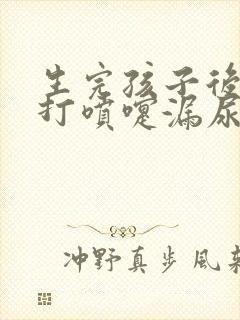 生完孩子後
打噴嚏漏尿
冲野真步風